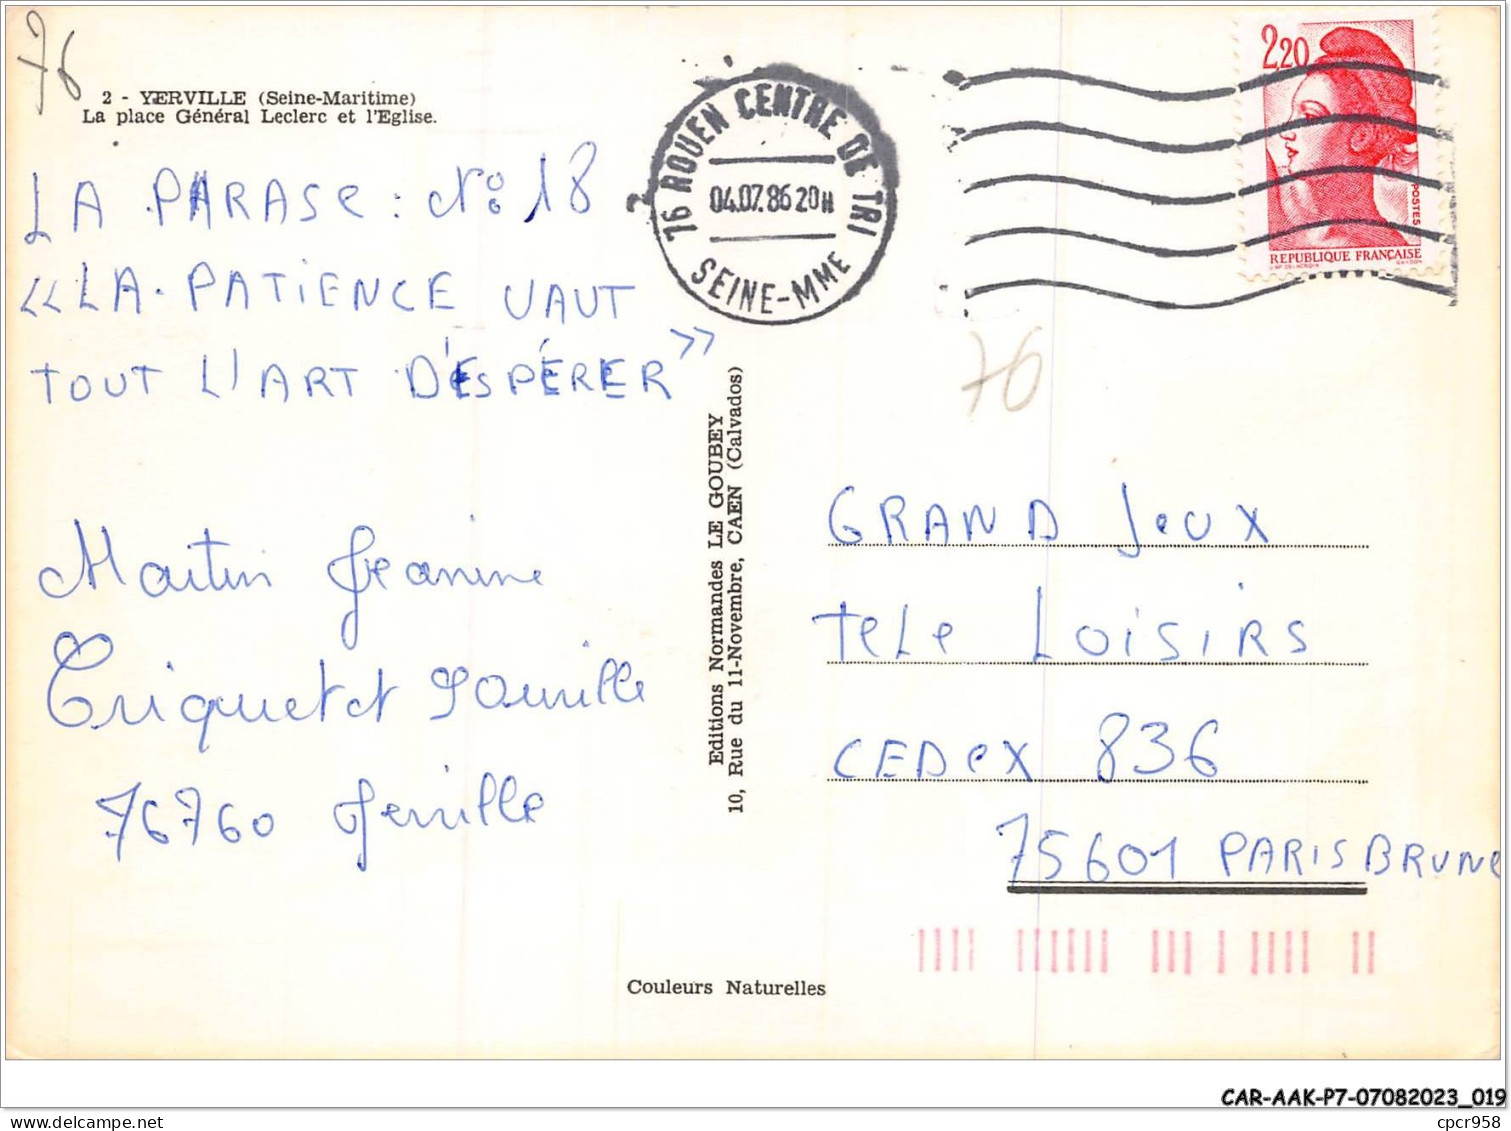 76
2 - YERVILLE (Seine-Maritime)
La place Général Leclerc et l'Eglise.
LA PHRASE : N° 18
«LA PATIENCE VAUT
TOUT L'ART D'ESPÉRER»
Martin Jeanine
76760 Yerville
Editions Normandes LE GOUBEY
10, Rue du 11-Novembre, CAEN (Calvados)
Couleurs Naturelles
76 ROUEN CENTRE DE TRI
04.07.86 20H
SEINE-MME
2,20
POSTES
REPUBLIQUE FRANÇAISE
76
GRAND JeUX
teLe LOiSiRS
CEDeX 836
75601 PARIS BRUNe
CAR-AAK-P7-07082023_019
cpcr958